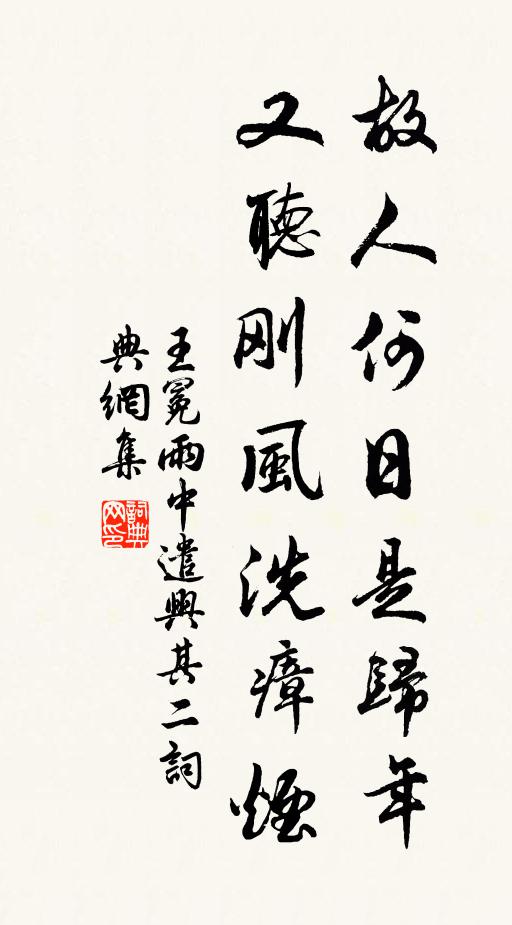 故人何日是歸年
又聽剛風洗瘴煙
王冕雨中遣興其二詞
典網集
詞典网印